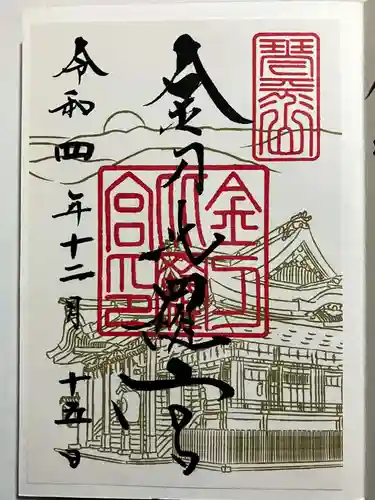 琴平山
金刀比羅宮
金刀比羅宮印
令和四年十二月十五日